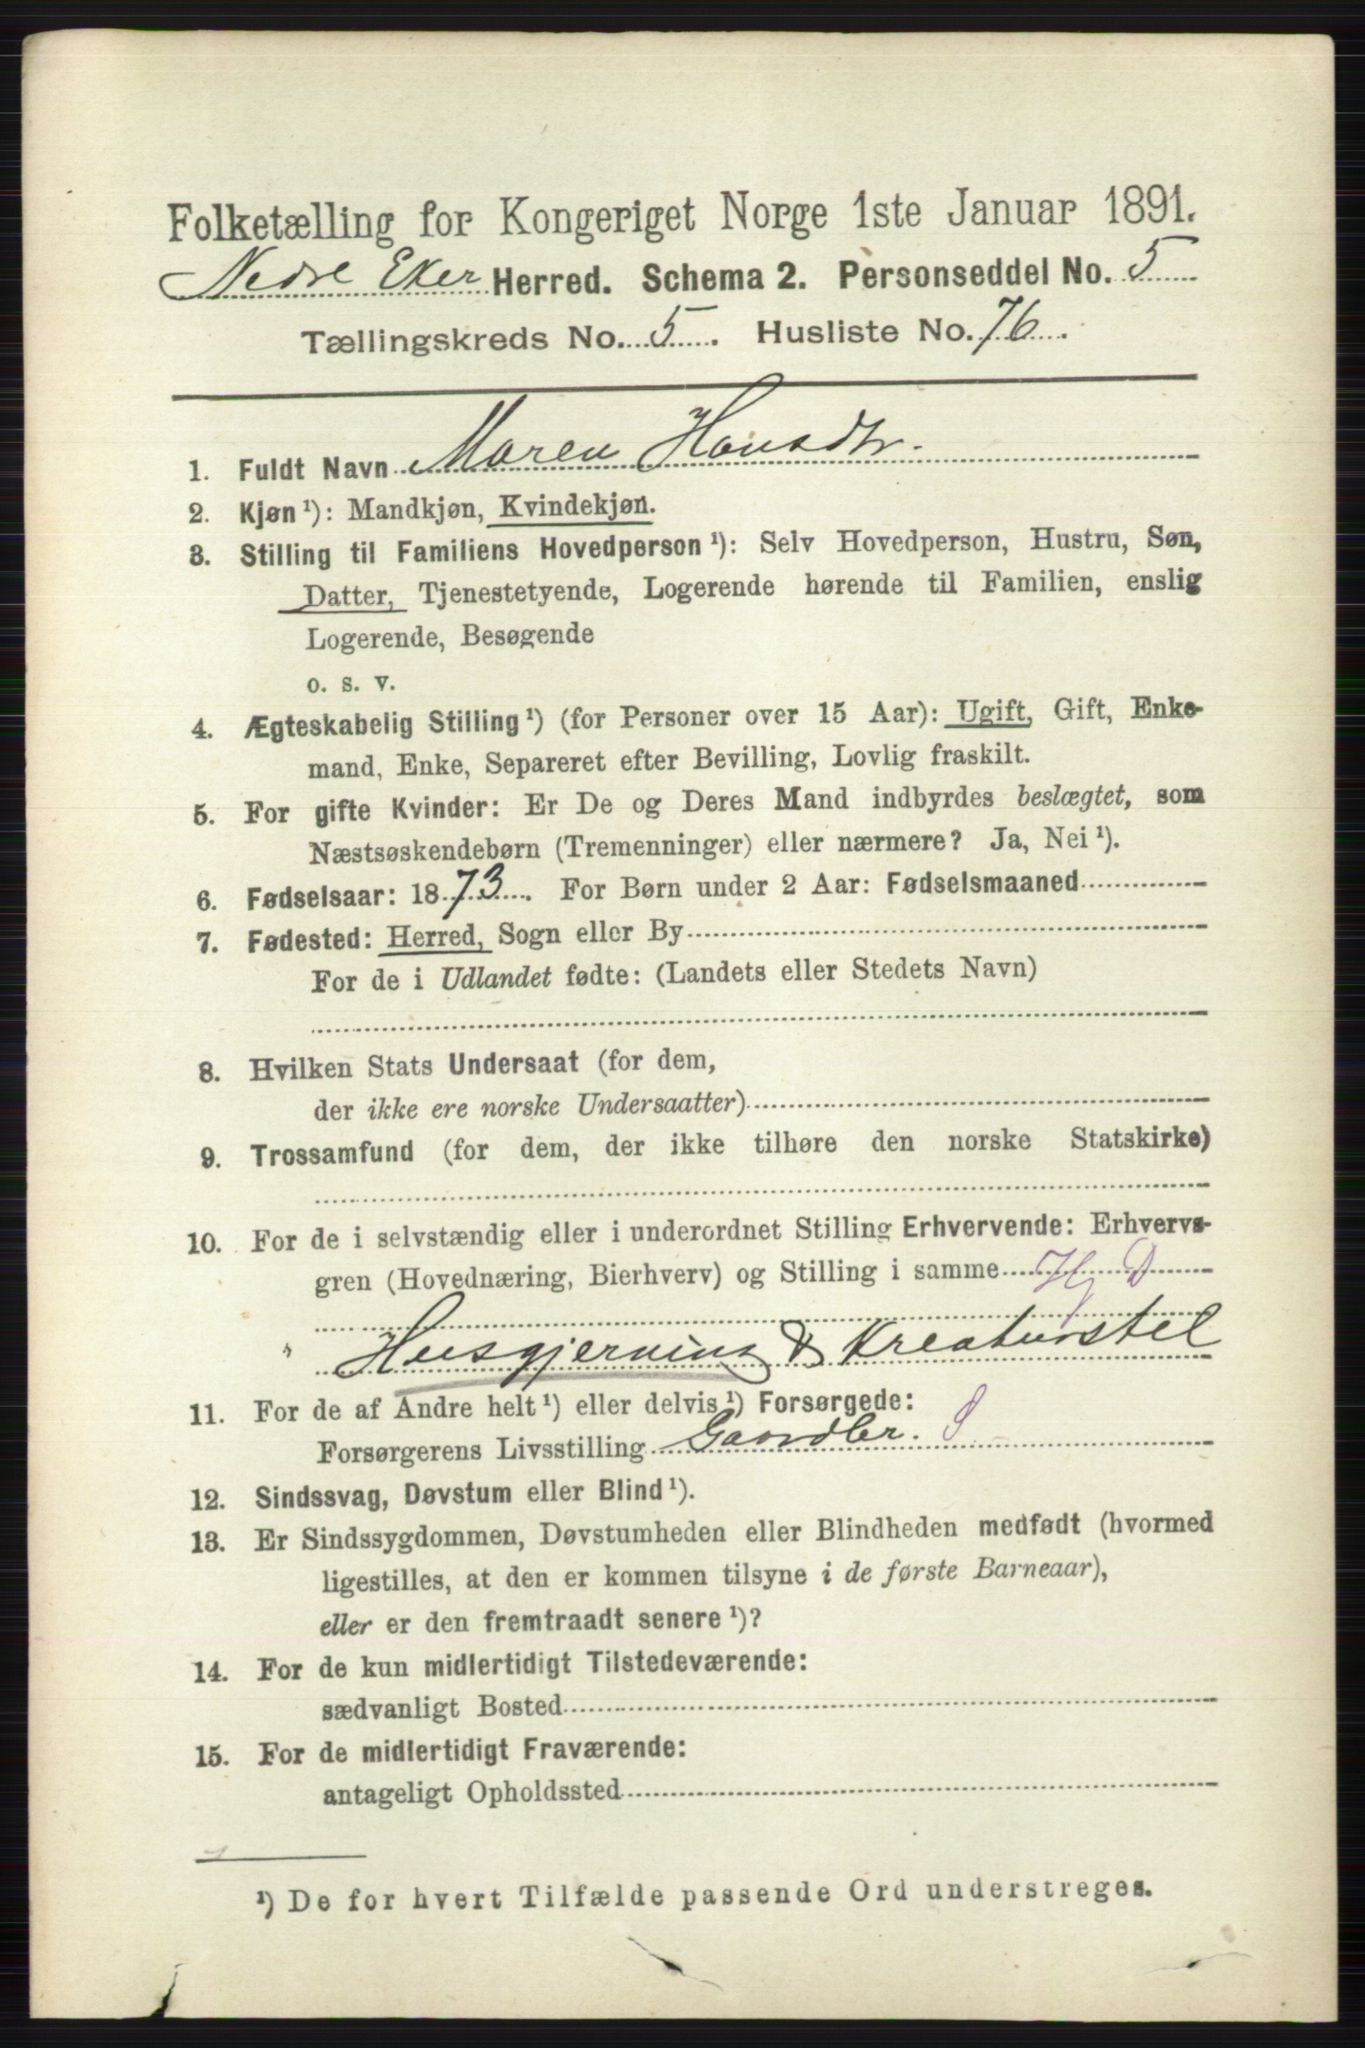 Folketælling for Kongeriget Norge 1ste Januar 1891.
Nedre Eker Herred. Schema 2. Personseddel No. 5
Tællingskreds No. 5. Husliste No. 76.
1. Fuldt Navn Maren Hansdtr.
2. Kjøn ¹): Mandkjøn, Kvindekjøn.
3. Stilling til Familiens Hovedperson ¹): Selv Hovedperson, Hustru, Søn,
Datter, Tjenestetyende, Logerende hørende til Familien, enslig
Logerende, Besøgende
o. s. v.
4. Ægteskabelig Stilling ¹) (for Personer over 15 Aar): Ugift, Gift, Enke-
mand, Enke, Separeret efter Bevilling, Lovlig fraskilt.
5. For gifte Kvinder: Er De og Deres Mand indbyrdes beslægtet, som
Næstsøskendebørn (Tremenninger) eller nærmere? Ja, Nei ¹).
6. Fødselsaar: 1873. For Børn under 2 Aar: Fødselsmaaned
7. Fødested: Herred, Sogn eller By
For de i Udlandet fødte: (Landets eller Stedets Navn)
8. Hvilken Stats Undersaat (for dem,
der ikke ere norske Undersaatter)
9. Trossamfund (for dem, der ikke tilhøre den norske Statskirke)
10. For de i selvstændig eller i underordnet Stilling Erhvervende: Erhvervs-
gren (Hovednæring, Bierhverv) og Stilling i samme Hj D
" Husgjerning & Kreaturstel
11. For de af Andre helt ¹) eller delvis ¹) Forsørgede:
Forsørgerens Livsstilling Gaardbr. S
12. Sindssvag, Døvstum eller Blind ¹).
13. Er Sindssygdommen, Døvstumheden eller Blindheden medfødt (hvormed
ligestilles, at den er kommen tilsyne i de første Barneaar),
eller er den fremtraadt senere ¹)?
14. For de kun midlertidigt Tilstedeværende:
sædvanligt Bosted
15. For de midlertidigt Fraværende:
antageligt Opholdssted
¹) De for hvert Tilfælde passende Ord understreges.